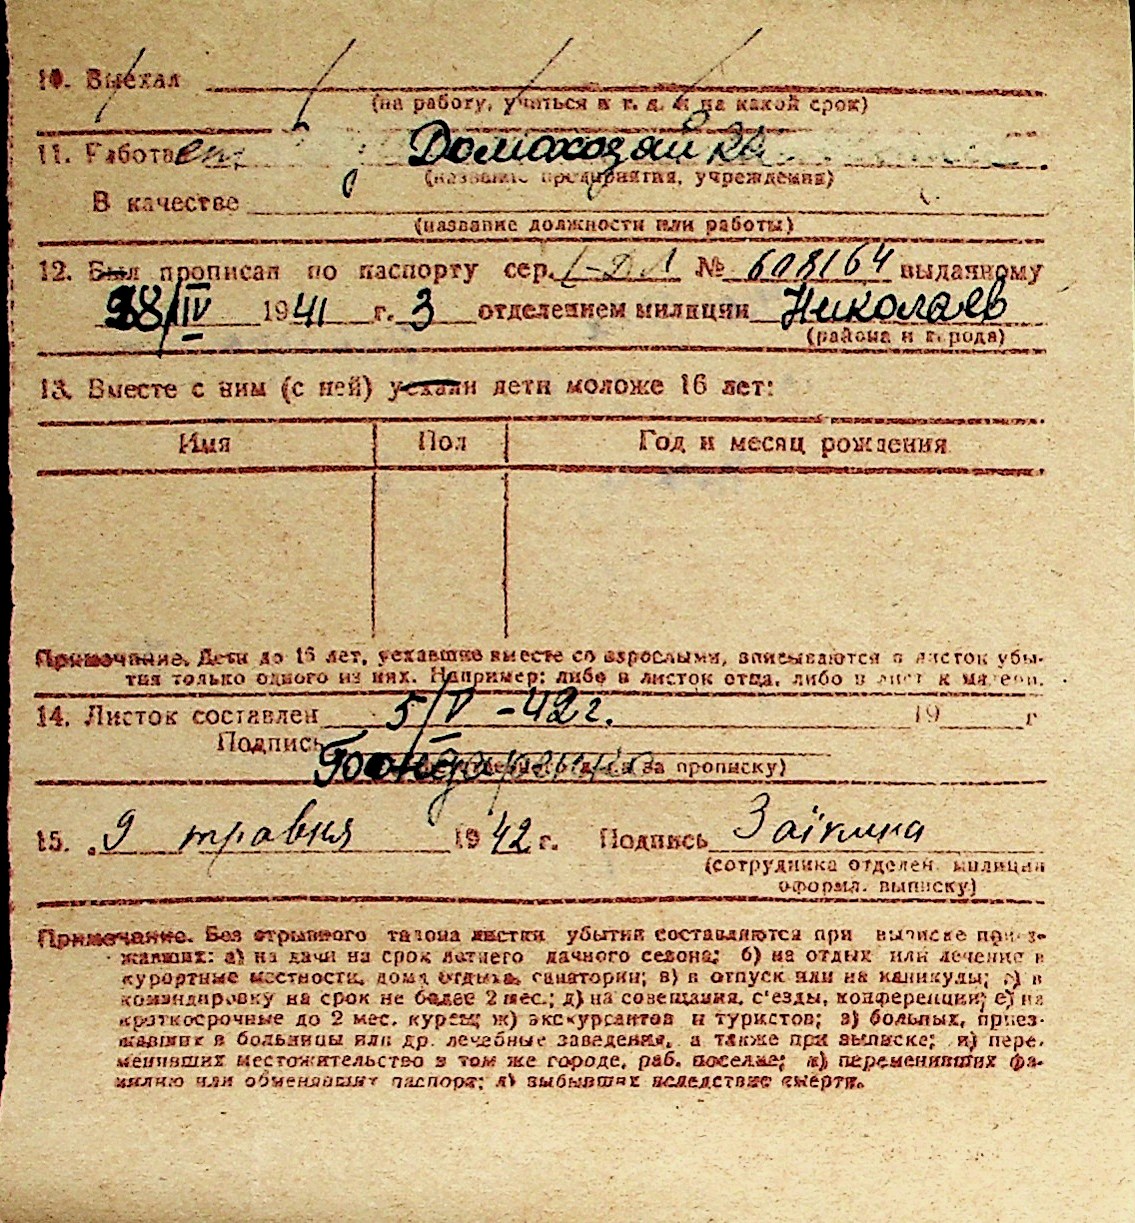 10. Выехал
(на работу, учиться и т. д. и на какой срок)
11. Работает Домохозяйка
(название предприятия, учреждения)
В качестве
(название должности или работы)
12. Был прописан по паспорту сер. I-ДЛ № 608164 выданному
28/IV 1941 г. 3 отделением милиции Николаев
(района и города)
13. Вместе с ним (с ней) уехали дети моложе 16 лет:
Имя Пол Год и месяц рождения
Примечание. Дети до 16 лет, уехавшие вместе со взрослыми, записываются в листок убы-
тия только одного из них. Например: либо в листок отца, либо в лист к матери.
14. Листок составлен 5/V -42 г. 19 г
Подпись
за прописку)
15. 9 травня 1942 г. Подпись Заікина
(сотрудника отделен. милиции
оформл. выписку)
Примечание. Без отрывного талона листки убытия составляются при выписке приез-
жавших: а) на дачи на срок летнего дачного сезона; б) на отдых или лечение в
курортные местности, дома отдыха, санатории; в) в отпуск или на каникулы; г) в
командировку на срок не более 2 мес.; д) на совещания, с'езды, конференции; е) на
краткосрочные до 2 мес. курсы; ж) экскурсантов и туристов; з) больных, приез-
жавших в больницы или др. лечебные заведения, а также при выписке; и) пере-
менивших местожительство в том же городе, раб. поселке; к) переменивших фа-
милию или обменявших паспорт; л) выбывших вследствие смерти.